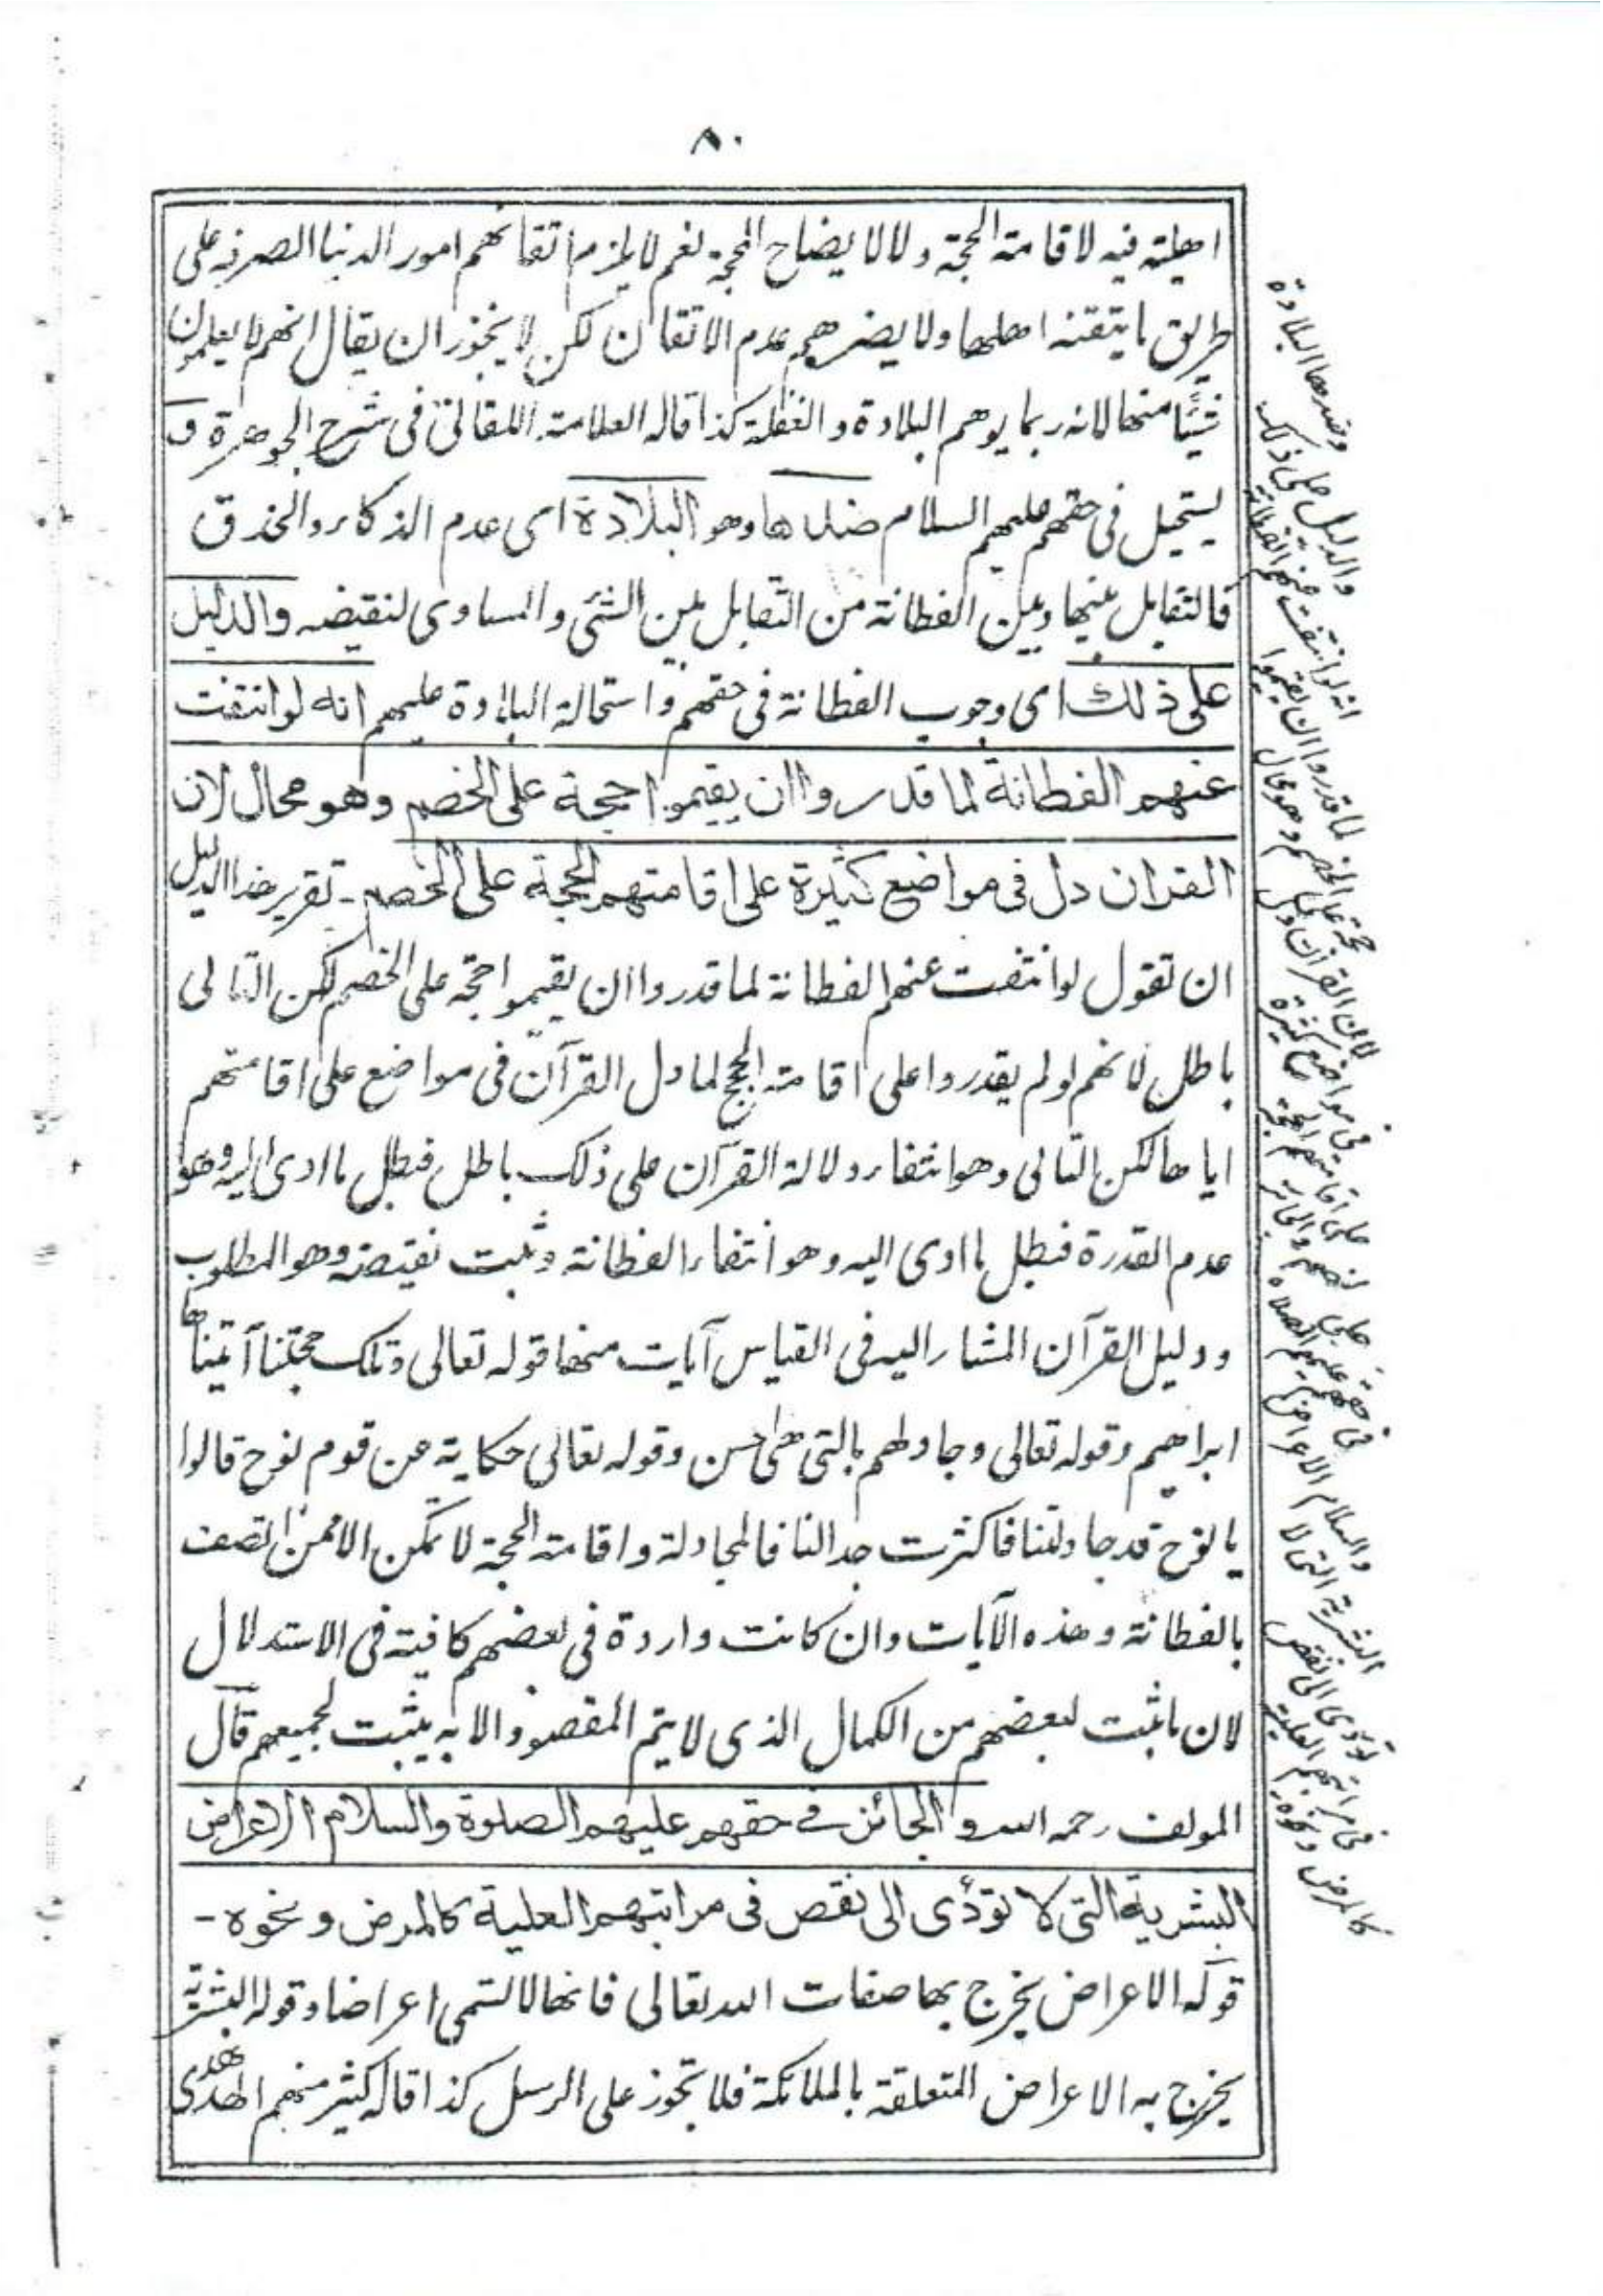 ٨٠
اهلية فيه لاقامة الحجة ولا لايضاح المحجة نعم لا يلزم اتقانهم امور الدنيا الصرفة على
طريق ما يتقنه اهلها ولا يضرهم عدم الاتقان لكن لا يجوز ان يقال انهم لا يعلمون
شيئا منها لانه ربما يوهم البلادة والغفلة كذا قاله العلامة اللقاني في شرح الجوهرة و
يستحيل في حقهم عليهم السلام ضدها وهو البلادة اى عدم الذكاء والحذق
فالتقابل بينها وبين الفطانة من التقابل بين الشئ والمساوى لنقيضه والدليل
على ذلك اى وجوب الفطانة في حقهم واستحالة البلادة عليهم انه لو انتفت
عنهم الفطانة لما قدروا ان يقيموا حجة على الخصم وهو محال لان
القران دل في مواضع كثيرة على اقامتهم الحجة على الخصم - تقرير هذا الدليل
ان تقول لو انتفت عنهم الفطانة لما قدروا ان يقيموا حجة على الخصم لكن التالى
باطل لانهم لو لم يقدروا على اقامة الحجج لما دل القرآن في مواضع على اقامتهم
اياها لكن التالى وهو انتفاء دلالة القرآن على ذلك باطل فبطل ما ادى اليه وهو
عدم القدرة فبطل ما ادى اليه وهو انتفاء الفطانة وثبت نقيضه وهو المطلوب
ودليل القرآن المشار اليه في القياس آيات منها قوله تعالى وتلك حجتنا آتيناها
ابراهيم وقوله تعالى وجادلهم بالتى هى احسن وقوله تعالى حكاية عن قوم نوح قالوا
يا نوح قد جادلتنا فاكثرت جدالنا فالمجادلة واقامة الحجة لا تمكن الا ممن اتصف
بالفطانة وهذه الآيات وان كانت واردة في بعضهم كافية في الاستدلال
لان ما ثبت لبعضهم من الكمال الذى لا يتم المقصود الا به يثبت لجميعهم قال
المولف رحمه الله والجائز في حقهم عليهم الصلوة والسلام الاعراض
البشرية التى لا تؤدى الى نقص فى مراتبهم العلية كالمرض ونحوه -
قوله الاعراض يخرج بها صفات الله تعالى فانها لا تسمى اعراضا وقوله البشرية
يخرج به الاعراض المتعلقة بالملائكة فلا تجوز على الرسل كذا قاله كثير منهم الهدهدى
وضدها البلادة
والدليل على ذلك
انه لو انتفت عنهم الفطانة
لما قدروا ان يقيموا
حجة على الخصم وهو محال
لان القرآن دل
في مواضع كثيرة
على اقامتهم الحجة
على الخصم والجائز
في حقهم عليهم الصلاة
والسلام الاعراض
البشرية التى لا
تؤدى الى نقص
في مراتبهم العلية
كالمرض ونحوه